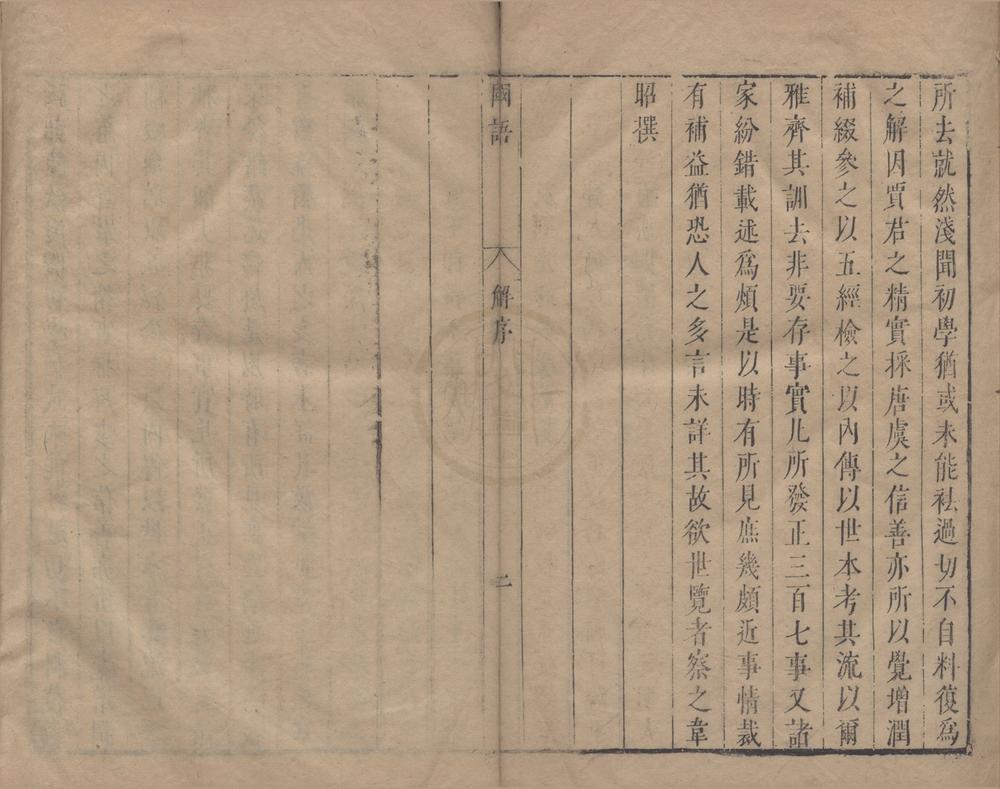 所去就然淺聞初學猶或未能祛過切不自料復爲
之解因賈君之精實採唐虞之信善亦所以覺增潤
補綴參之以五經檢之以內傳以世本考其流以爾
雅齊其訓去非要存事實凡所發正三百七事又諸
家紛錯載述爲煩是以時有所見庶幾頗近事情裁
有補益猶恐人之多言未詳其故欲世覽者察之韋
昭撰
國語
解序
二